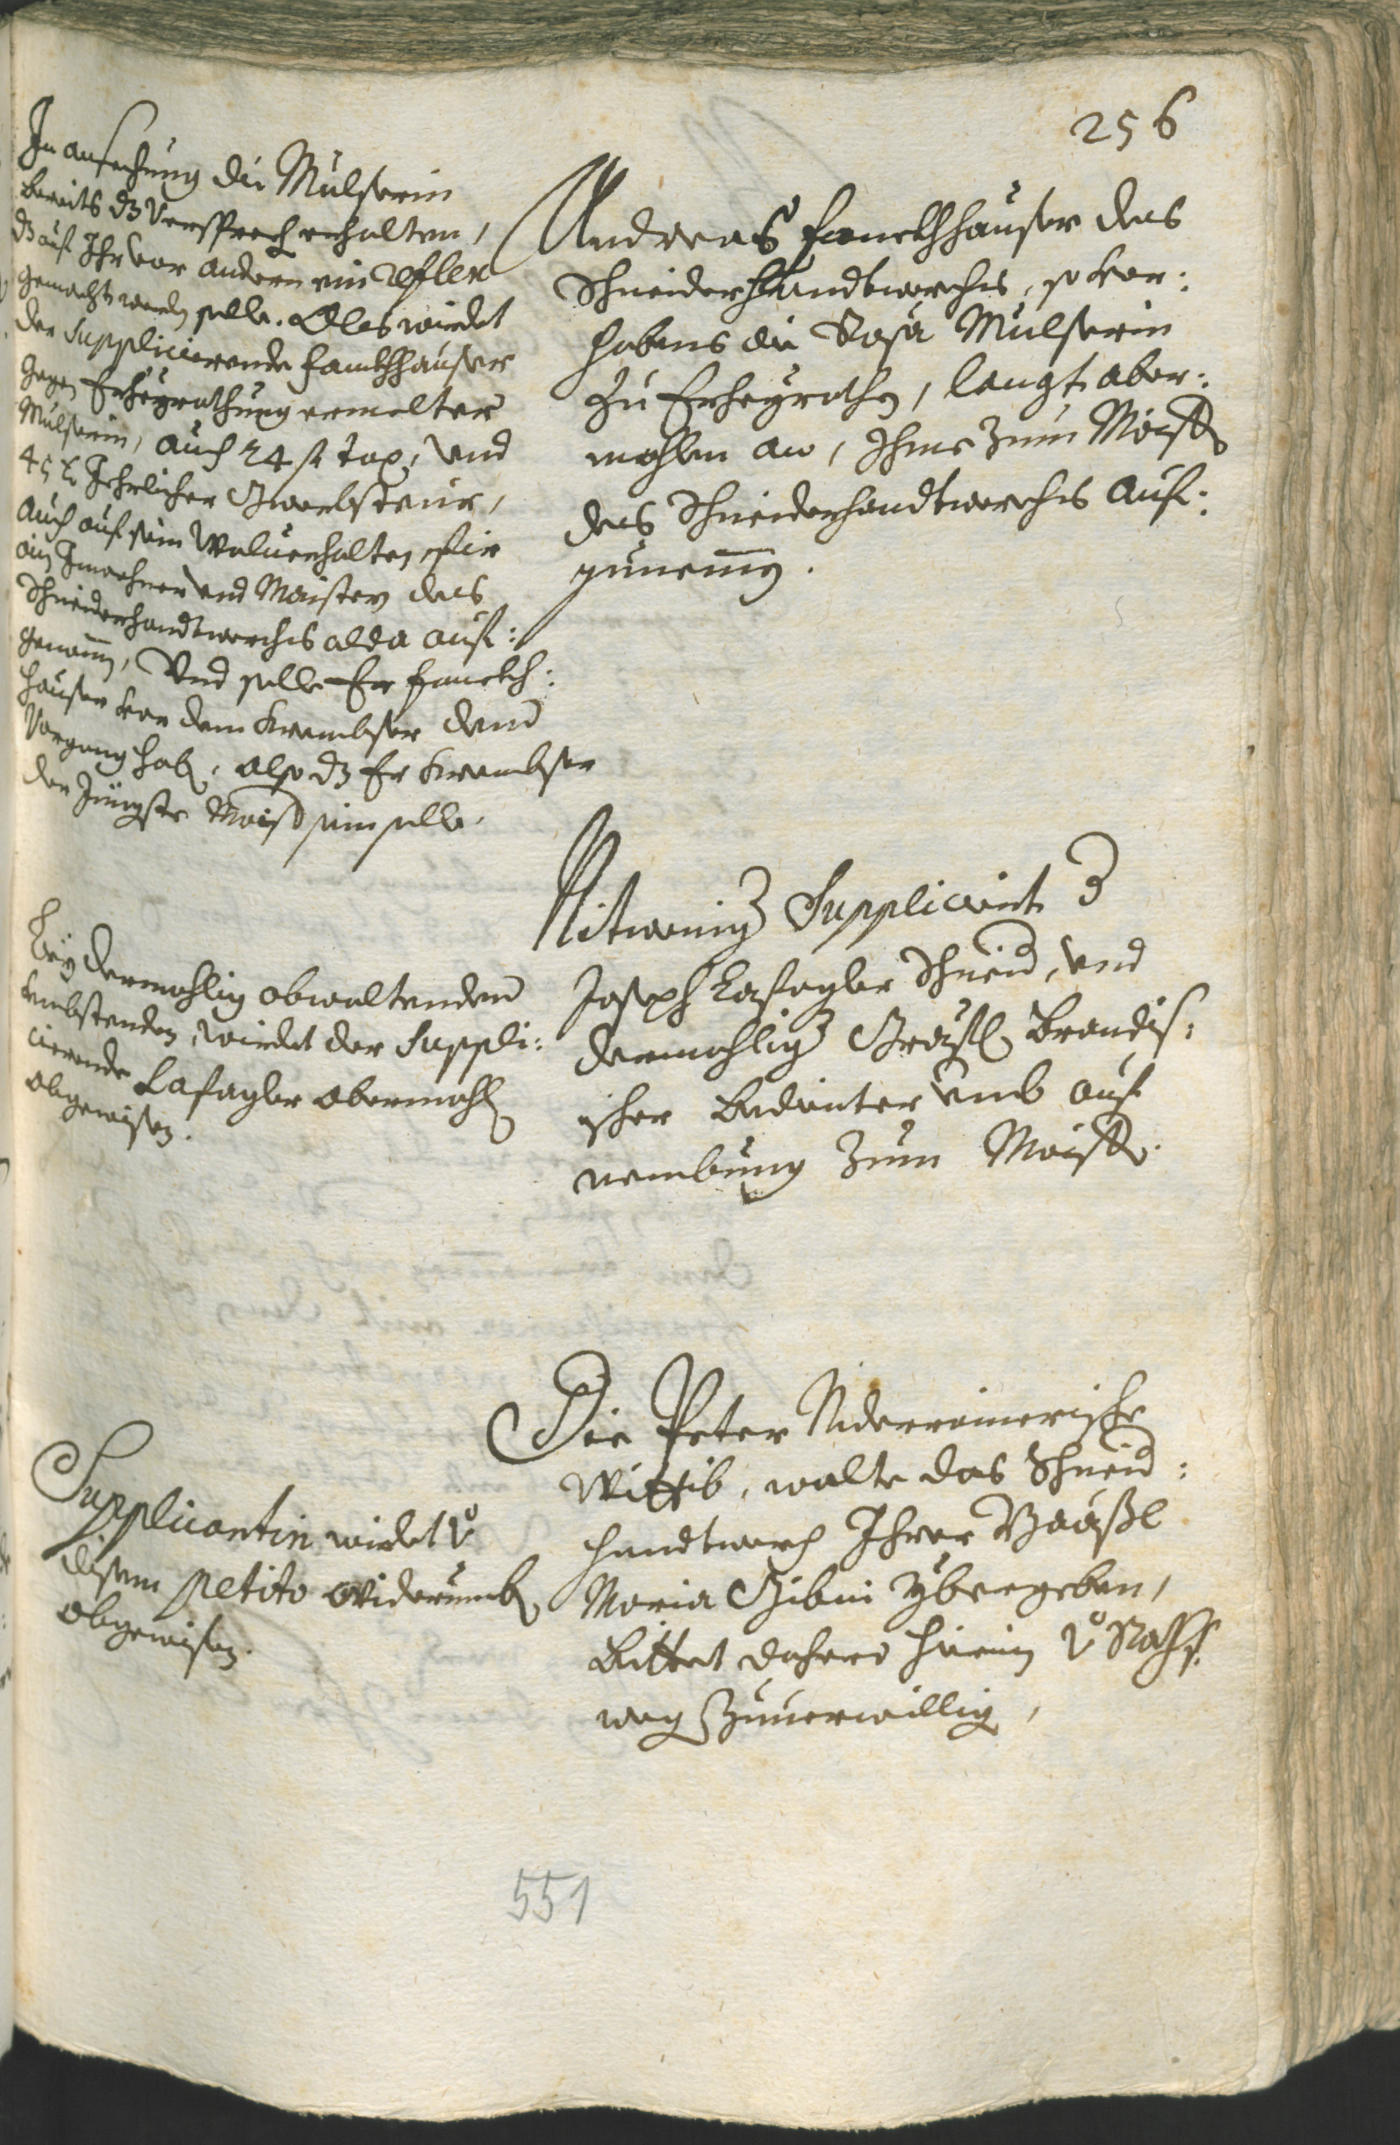 256
In ansechung die Mulserin
bereits dz Versprech erhalten,
dz auf Ihr vor andern ein reflex
gemacht werden solle. Als wirdet
der Supplicierende Fanckhhauser
gegen Erheyrathung ermelter
Mulserin, auch 24 fl Tax, und
45 kr Jehrlicher Gwerbsteur,
auch auf sein Wolverhalten, fir
ein Inwohner und Maister des
Schneiderhandtwerchs alda auf:
genomen, Und solle Er Fanckh:
hauser vor dem Krembser den
Vorgang haben, also dz Er Krembser
der Jüngste Maister sein solle.
Andreas Fanckhhauser des
Schneiderhandtwerchs, so vor:
habens die Rosa Mulserin
zu Erheyrathen, langt aber:
mahlen an, Ihme zum Maister
des Schneiderhandtwerchs auf:
zunemen.
Bey dermahlig obwaltenden
umbstenden, wirdet der Suppli:
cierende Lafogler abermahlen
abgewisen.
Nitweniger Supplicirt
Joseph Lafogler Schneider, und
dermahliger Gräfl. Brandis:
ischer Bedienter umb auf
nembung zum Maister.
Supplicantin wirdet von
disem petito widerumben
abgewisen.
Die Peter Niderrainerische
Wittib, wolte das Schneider:
handtwerch Ihrer Baaßl
Maria übergeben,
Bittet dahero hierein von Raths
weg Zuuerwilligen,
551